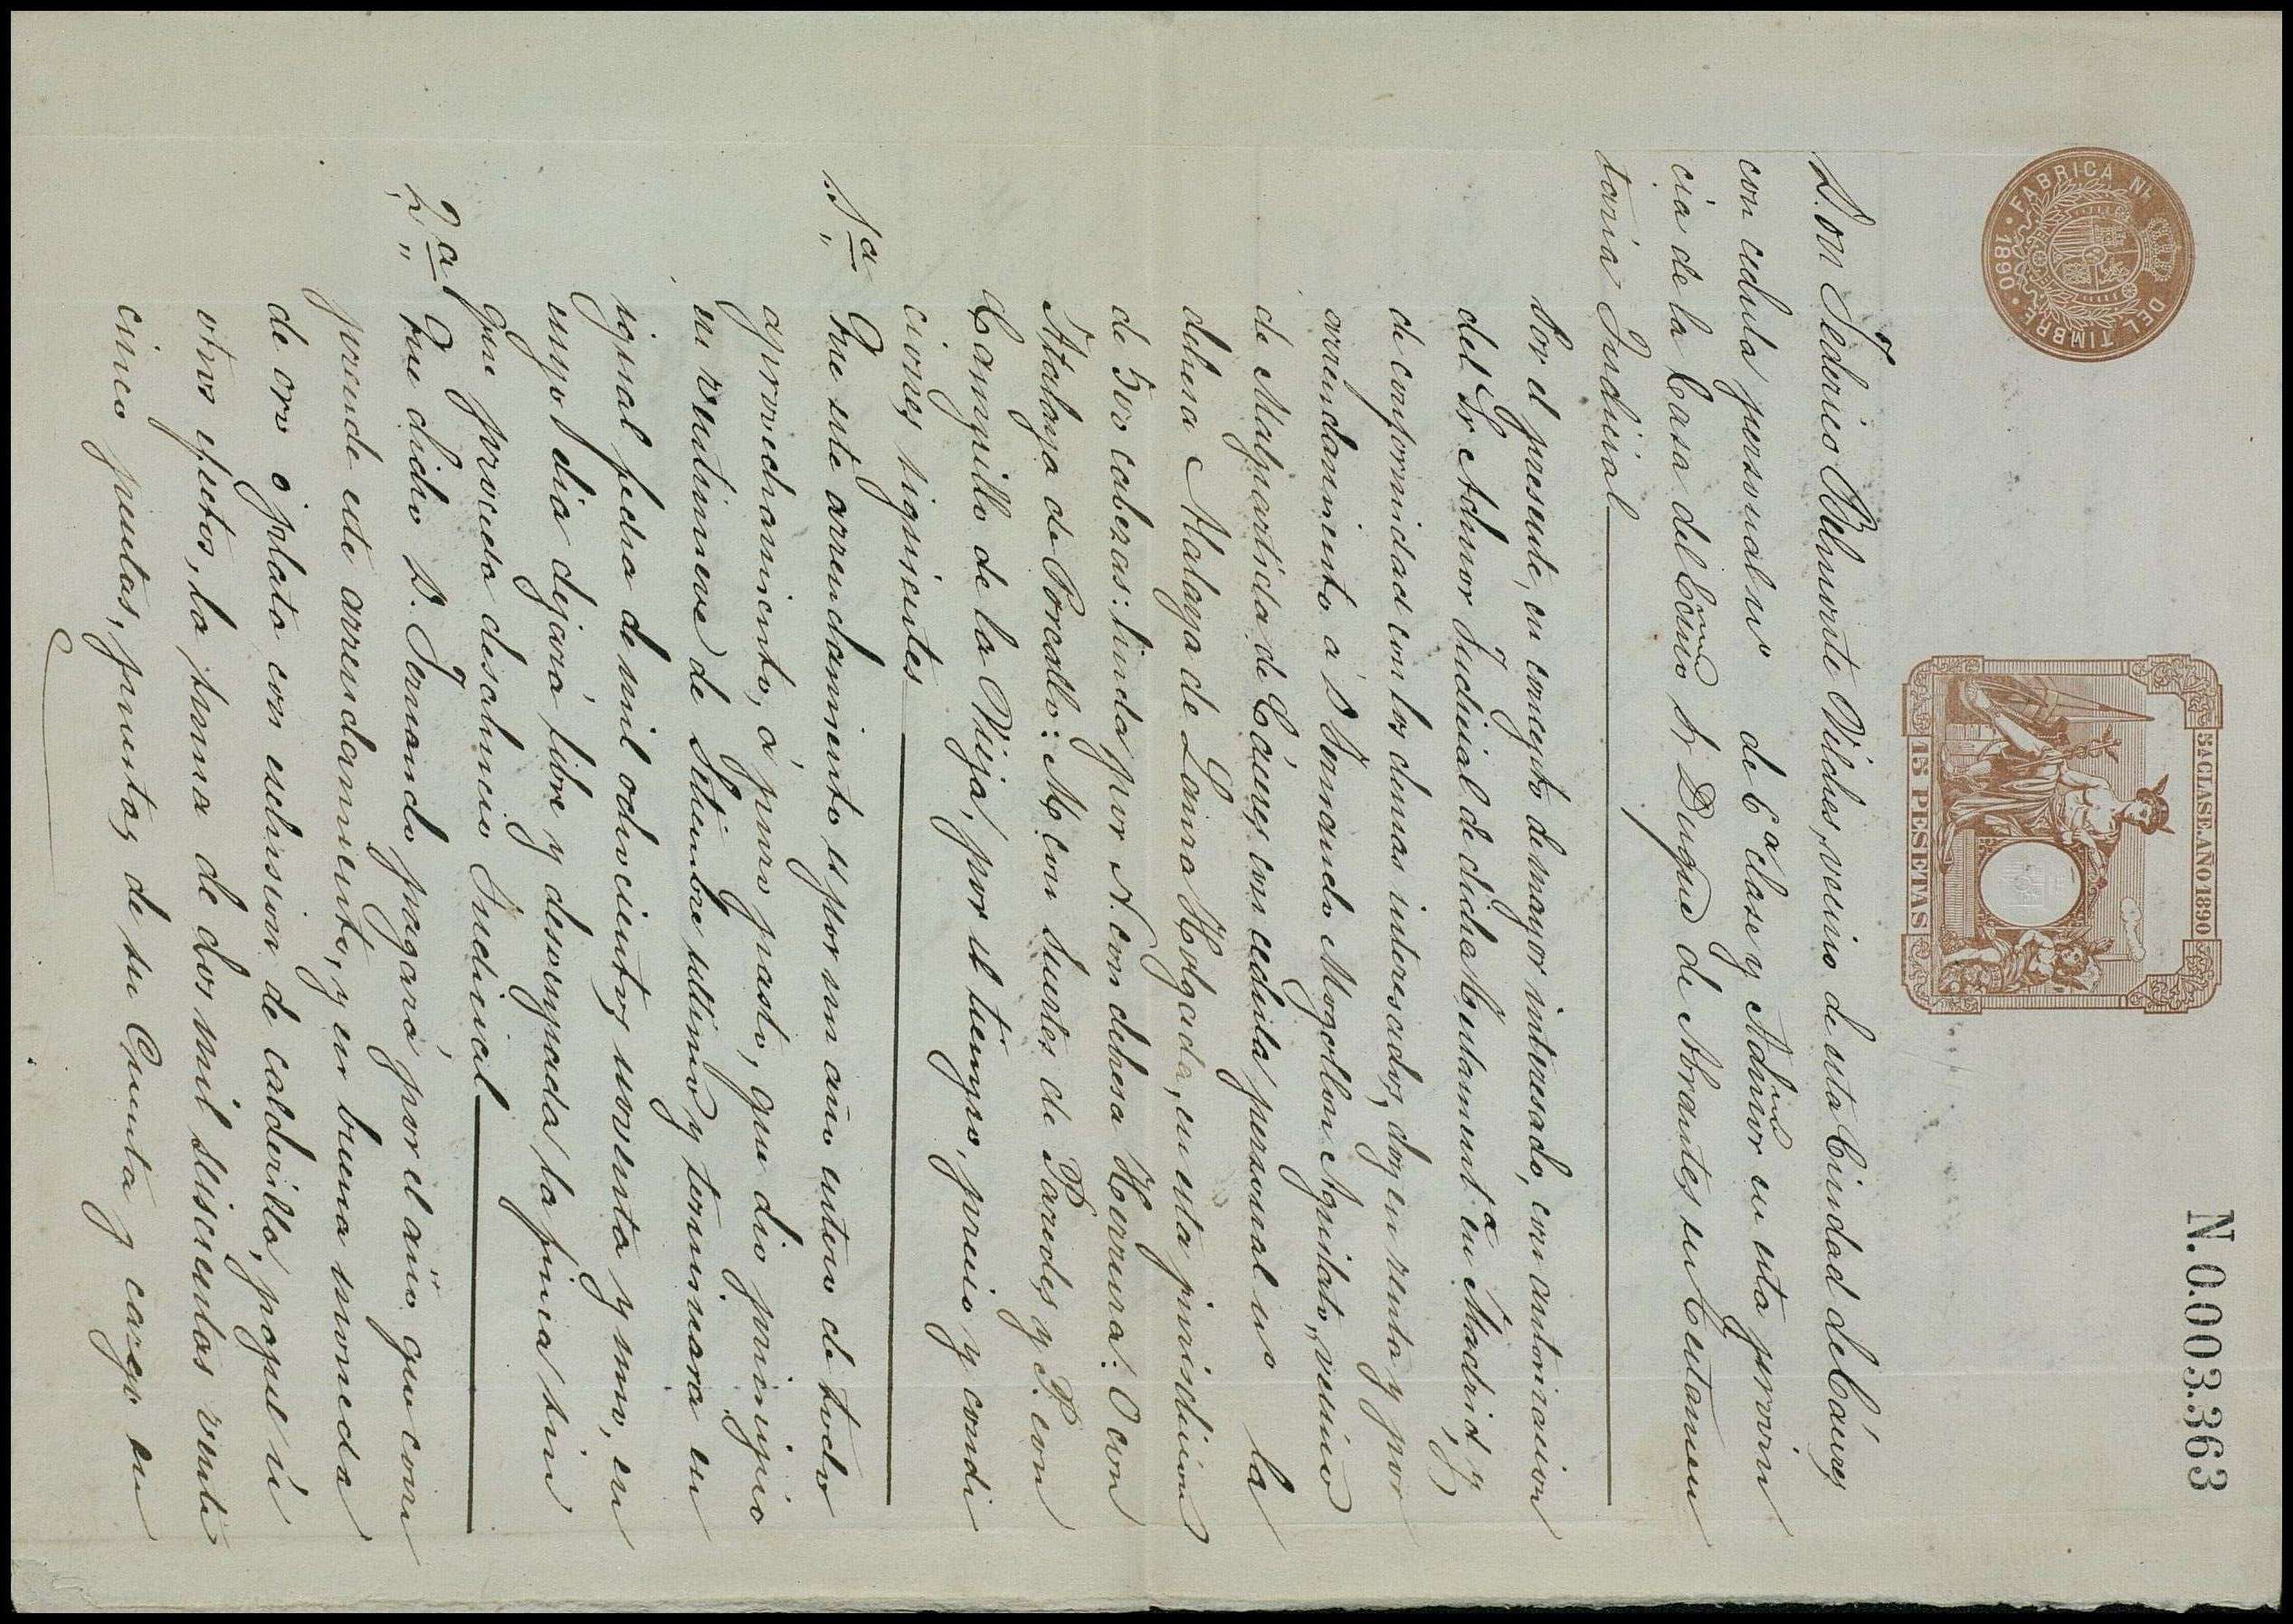 N.0.003.363
5ª CLASE. AÑO 1890
15 PESETAS
FABRICA NL DEL TIMBRE
1890
Don Federico Belmonte Vilches, vecino de esta Ciudad de Cáceres
con cedula personal no de 6ª clase y Admor en esta provin
cia de la Casa del Excmo Sr Duque de Abrantes en Testamen
taria Judicial
Por el presente, en concepto de mayor interesado, con autorizacion
del Sr Admor Judicial de dicha Testamentª en Madrid, y
de conformidad con los demas interesados, doy en renta y por
arrendamiento á D Fernando Mogollon Aguilar, vecino
de Malpartida de Cáceres, con cedula personal no la
dehesa Atalaya de Zamra Holgada, en esta jurisdiccion
de 500 cabezas: linda por N. con dehesa Herrera: O con
Atalaya de Porcallo: M. con Suertes de Paredes y P. con
Campillo de la Vieja, por el tiempo, precio y condi
ciones siguientes
1ª Que este arrendamiento es por un año entero de todo
aprovechamiento, á puro pasto, que dio principio
en veintinueve de Setiembre ultimo y terminara en
igual fecha de mil ochocientos noventa y uno, en
cuyo dia dejará libre y desocupada la finca sin
que proceda desahucio Judicial
2ª Que dicho D. Fernando pagará por el año que com
prende este arrendamiento, y en buena moneda
de oro ó plata con esclusion de calderilla, papel ú
otros efectos, la suma de dos mil seiscientas veinte
cinco pesetas, puestas de su Cuenta y cargo en